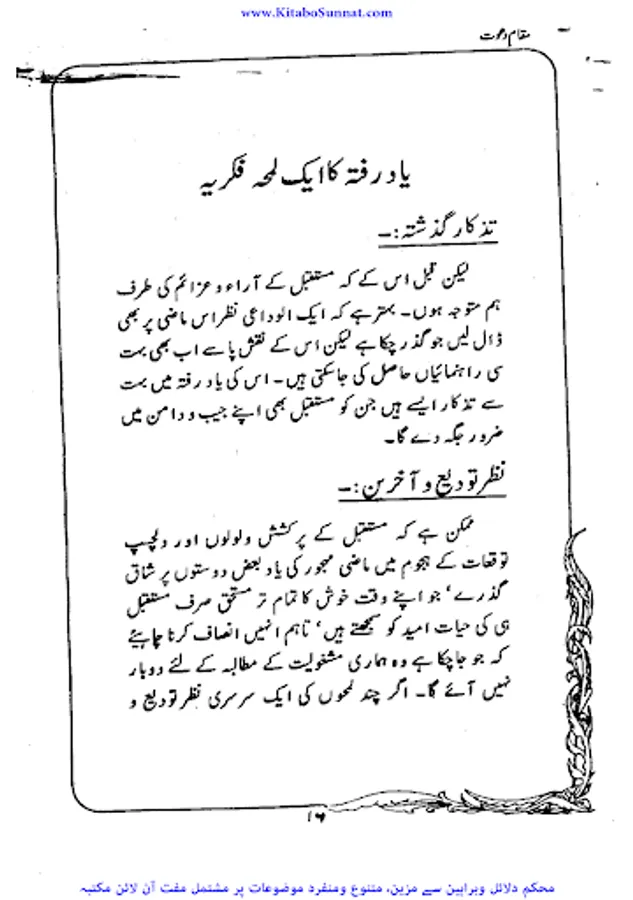 www.KitaboSunnat.com
مقام دعوت
یاد رفتہ کا ایک لمحہ فکریہ
تذکار گذشتہ:۔
لیکن قبل اس کے کہ مستقبل کے آراء و عزائم کی طرف
ہم متوجہ ہوں۔ بہتر ہے کہ ایک الوداعی نظر اس ماضی پر بھی
ڈال لیں جو گذر چکا ہے لیکن اس کے نقش پا سے اب بھی بہت
سی راہنمائیاں حاصل کی جا سکتی ہیں۔ اس کی یاد رفتہ میں بہت
سے تذکار ایسے ہیں جن کو مستقبل بھی اپنے جیب و دامن میں
ضرور جگہ دے گا۔
نظر تودیع و آخرین:۔
ممکن ہے کہ مستقبل کے پرکشش ولولوں اور دلچسپ
توقعات کے ہجوم میں ماضی مہجور کی یاد بعض دوستوں پر شاق
گذرے' جو اپنے وقت خوش کا تمام تر مستحق صرف مستقبل
ہی کی حیات امید کو سمجھتے ہیں' تاہم انہیں انصاف کرنا چاہیئے
کہ جو جا چکا ہے وہ ہماری مشغولیت کے مطالبہ کے لئے دوبار
نہیں آئے گا۔ اگر چند لمحوں کی ایک سرسری نظر تودیع و
۱۶
محکم دلائل وبراہین سے مزین، متنوع ومنفرد موضوعات پر مشتمل مفت آن لائن مکتبہ